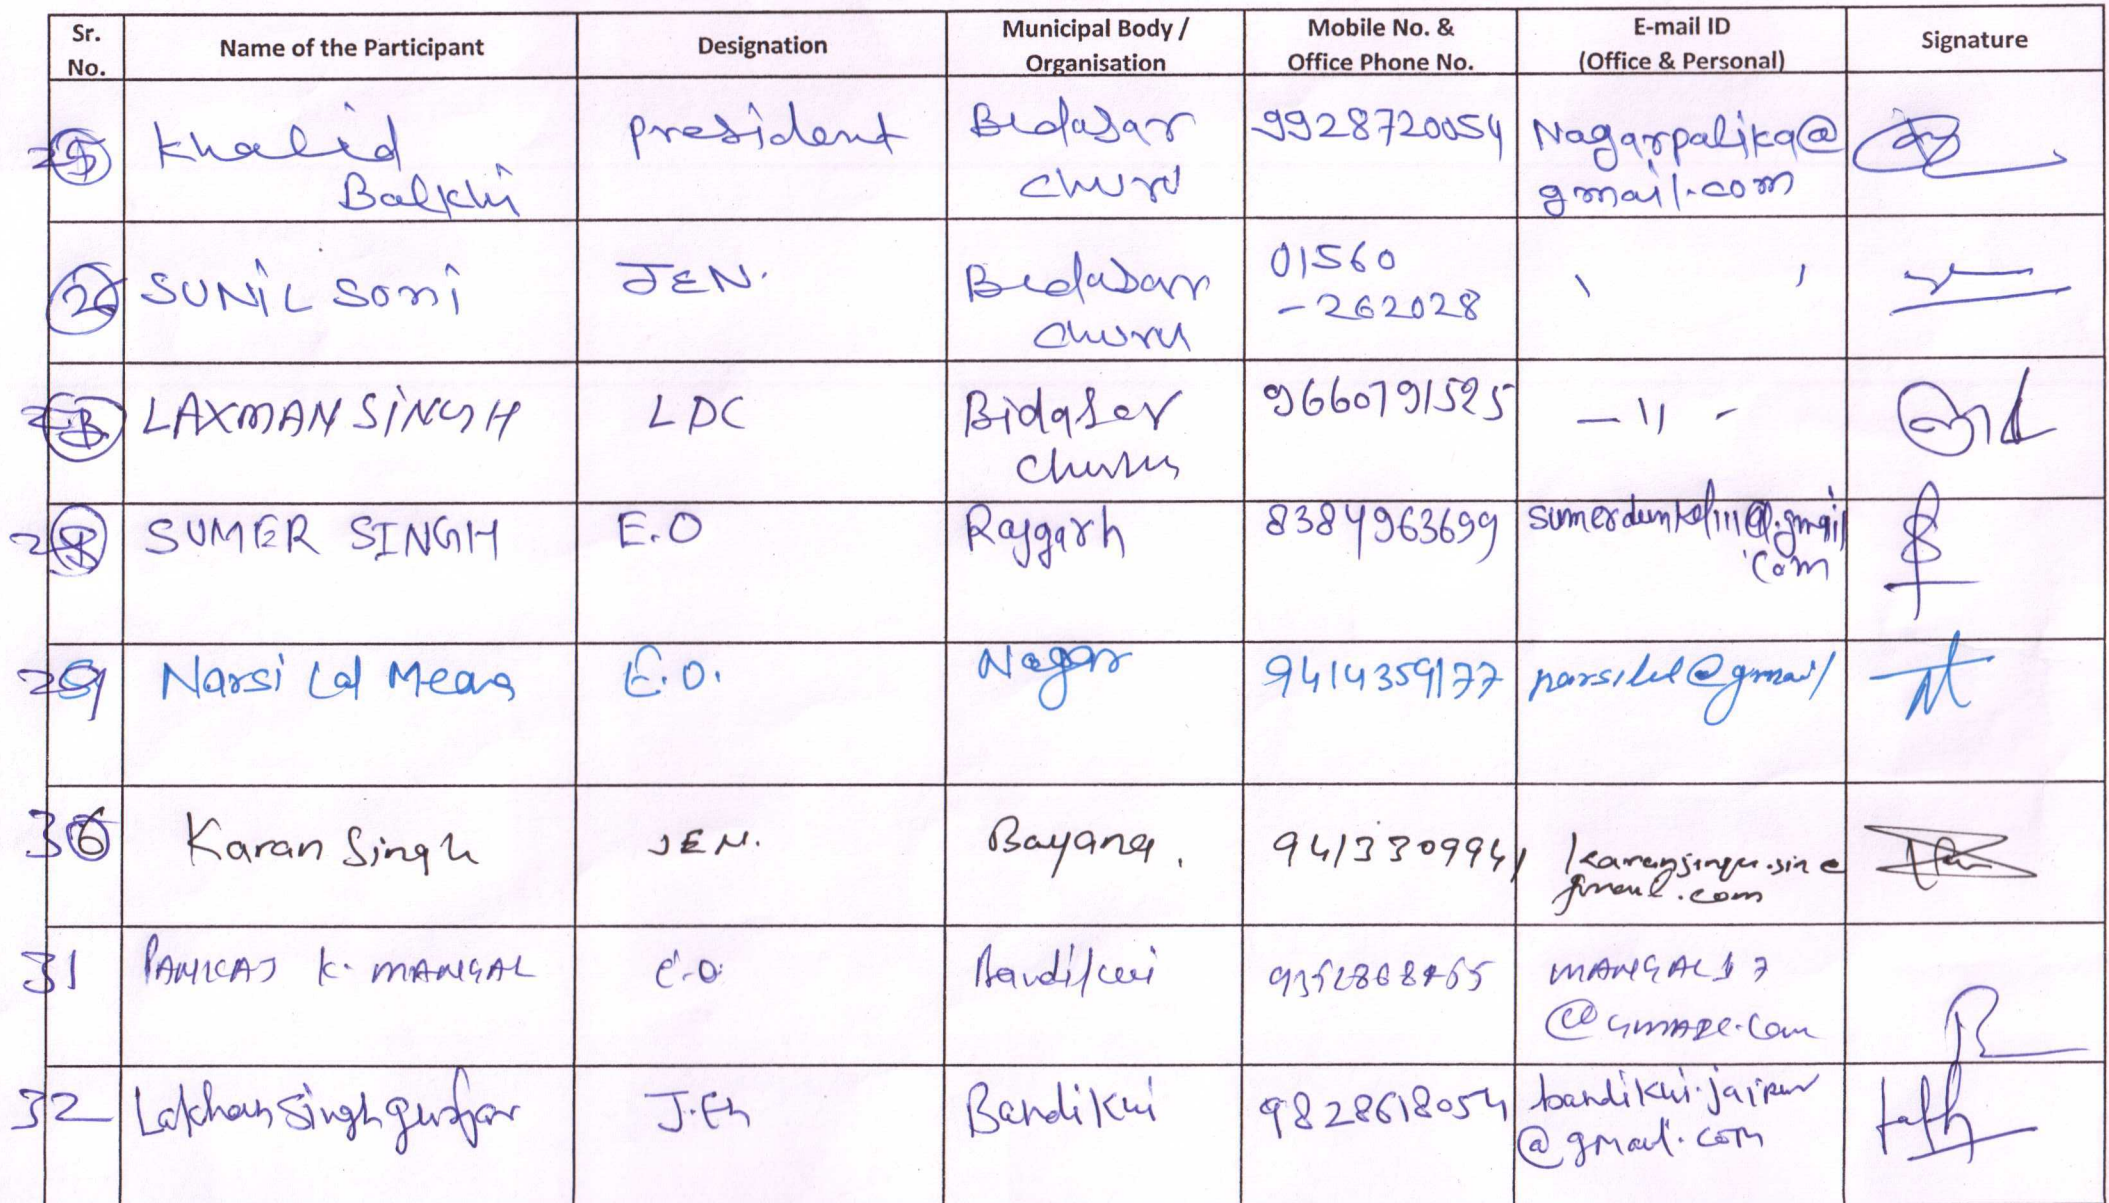 Sr. No. Name of the Participant Designation Municipal Body / Organisation Mobile No. & Office Phone No. E-mail ID (Office & Personal) Signature
25 Khalid Balkhi president Bedasar churu 9928720054 Nagarpalika@gmail.com
26 SUNIL SONI JEN. Bedasar churu 01560 -262028
LAXMAN SINGH LDC Bidaser churu 9660791525 — 11 -
28 SUMER SINGH E.O Rajgarh 8384963699
29 Narsi Lal Meena E.O. Nagar 9414359177 narsilal@gmail
30 Karan Singh JEN. Bayana. 9413309941
31 PANKAJ K. MANGAL E.O. Bandikui
32 Lakhan Singh gurjar J.En Bandikui 9828618054 bandikui.jaipur @gmail.com